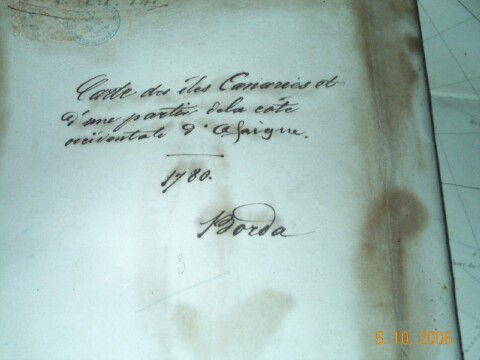 Carte des îles Canaries et
d'une partie de la cote
occidentale d'Afrique.
1780.
Borda
3
5.10.2006